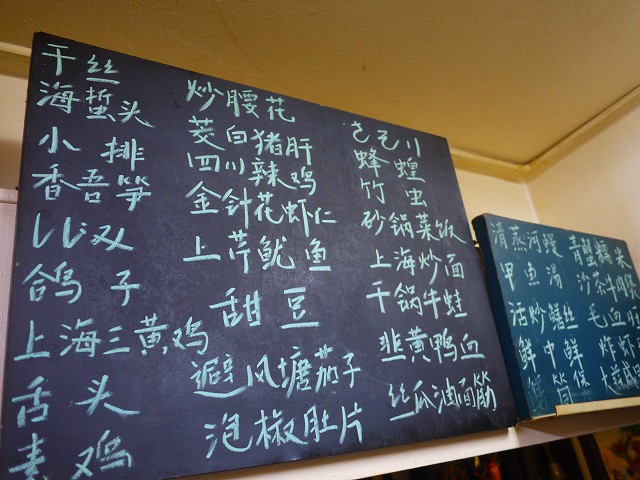 干丝
海蜇头
小排
香莴笋
しじみ
鸽子
上海三黄鸡
舌头
素鸡
炒腰花
茭白猪肝
四川辣鸡
金针花虾仁
上芹鱿鱼
甜豆
避风塘茄子
泡椒肚片
さそり
蜂蝗
竹虫
砂锅菜饭
上海炒面
干锅牛蛙
韭黄鸭血
丝瓜油面筋
清蒸河鳗
甲鱼湯
活炒鳝丝
鲜中鲜
青蟹糯米
沙茶牛肉
毛血
炸虾